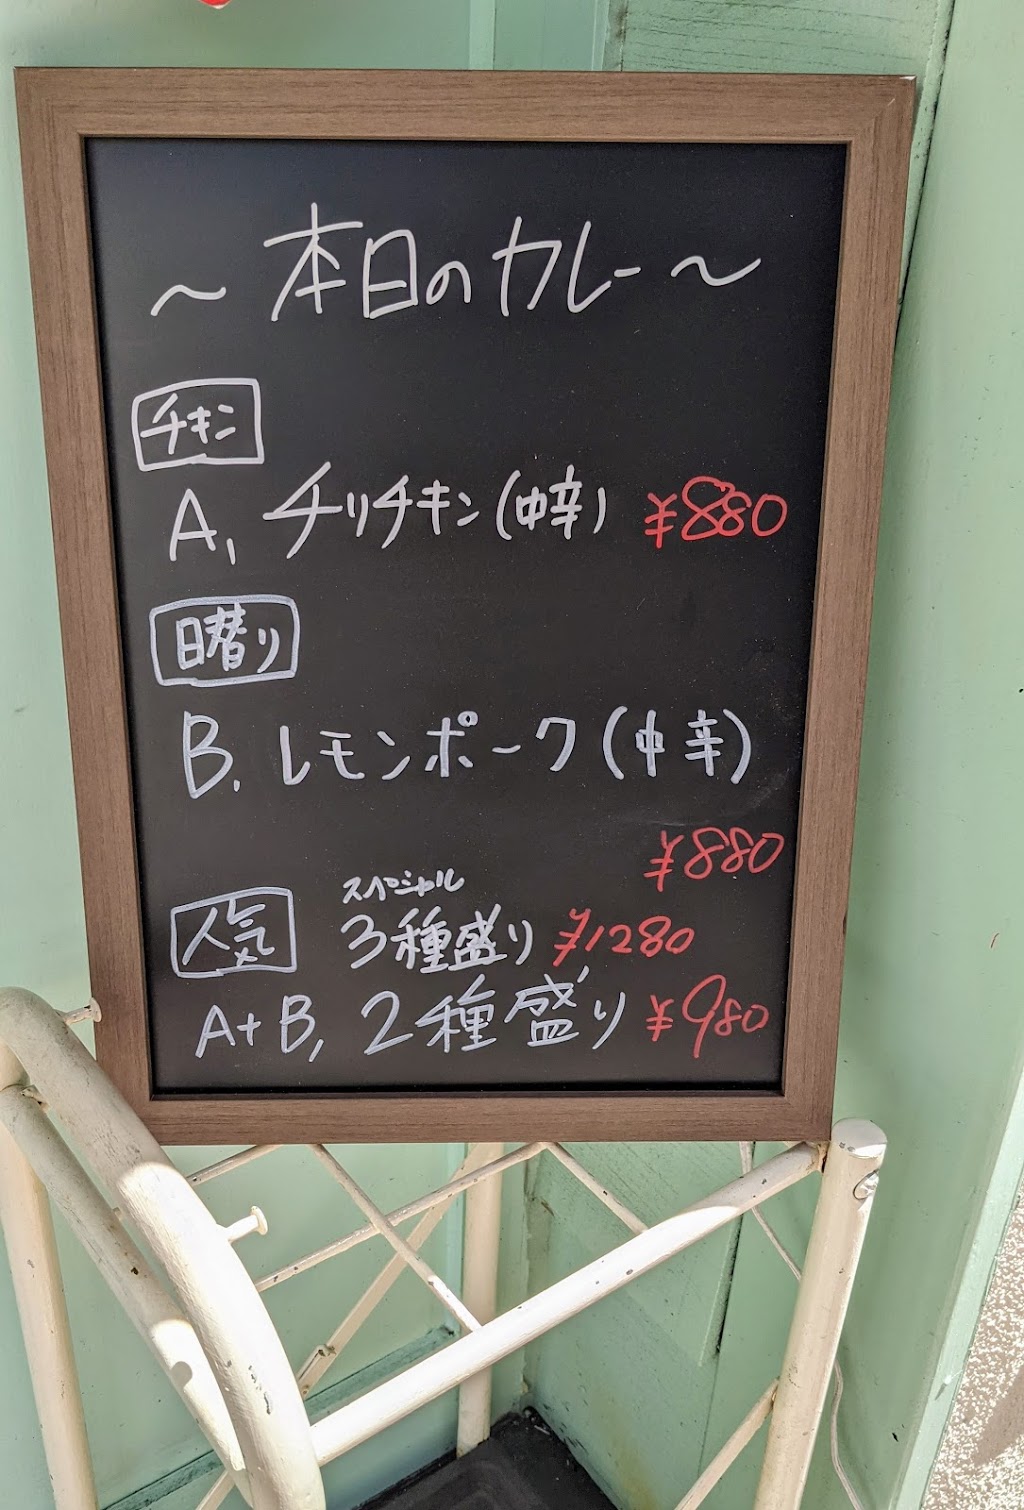 ～本日のカレー～
チキン
A, チリチキン(中辛) ¥880
日替り
B. レモンポーク(中辛)
¥880
スペシャル
人気 3種盛り ¥1280
A+B, 2種盛り ¥980